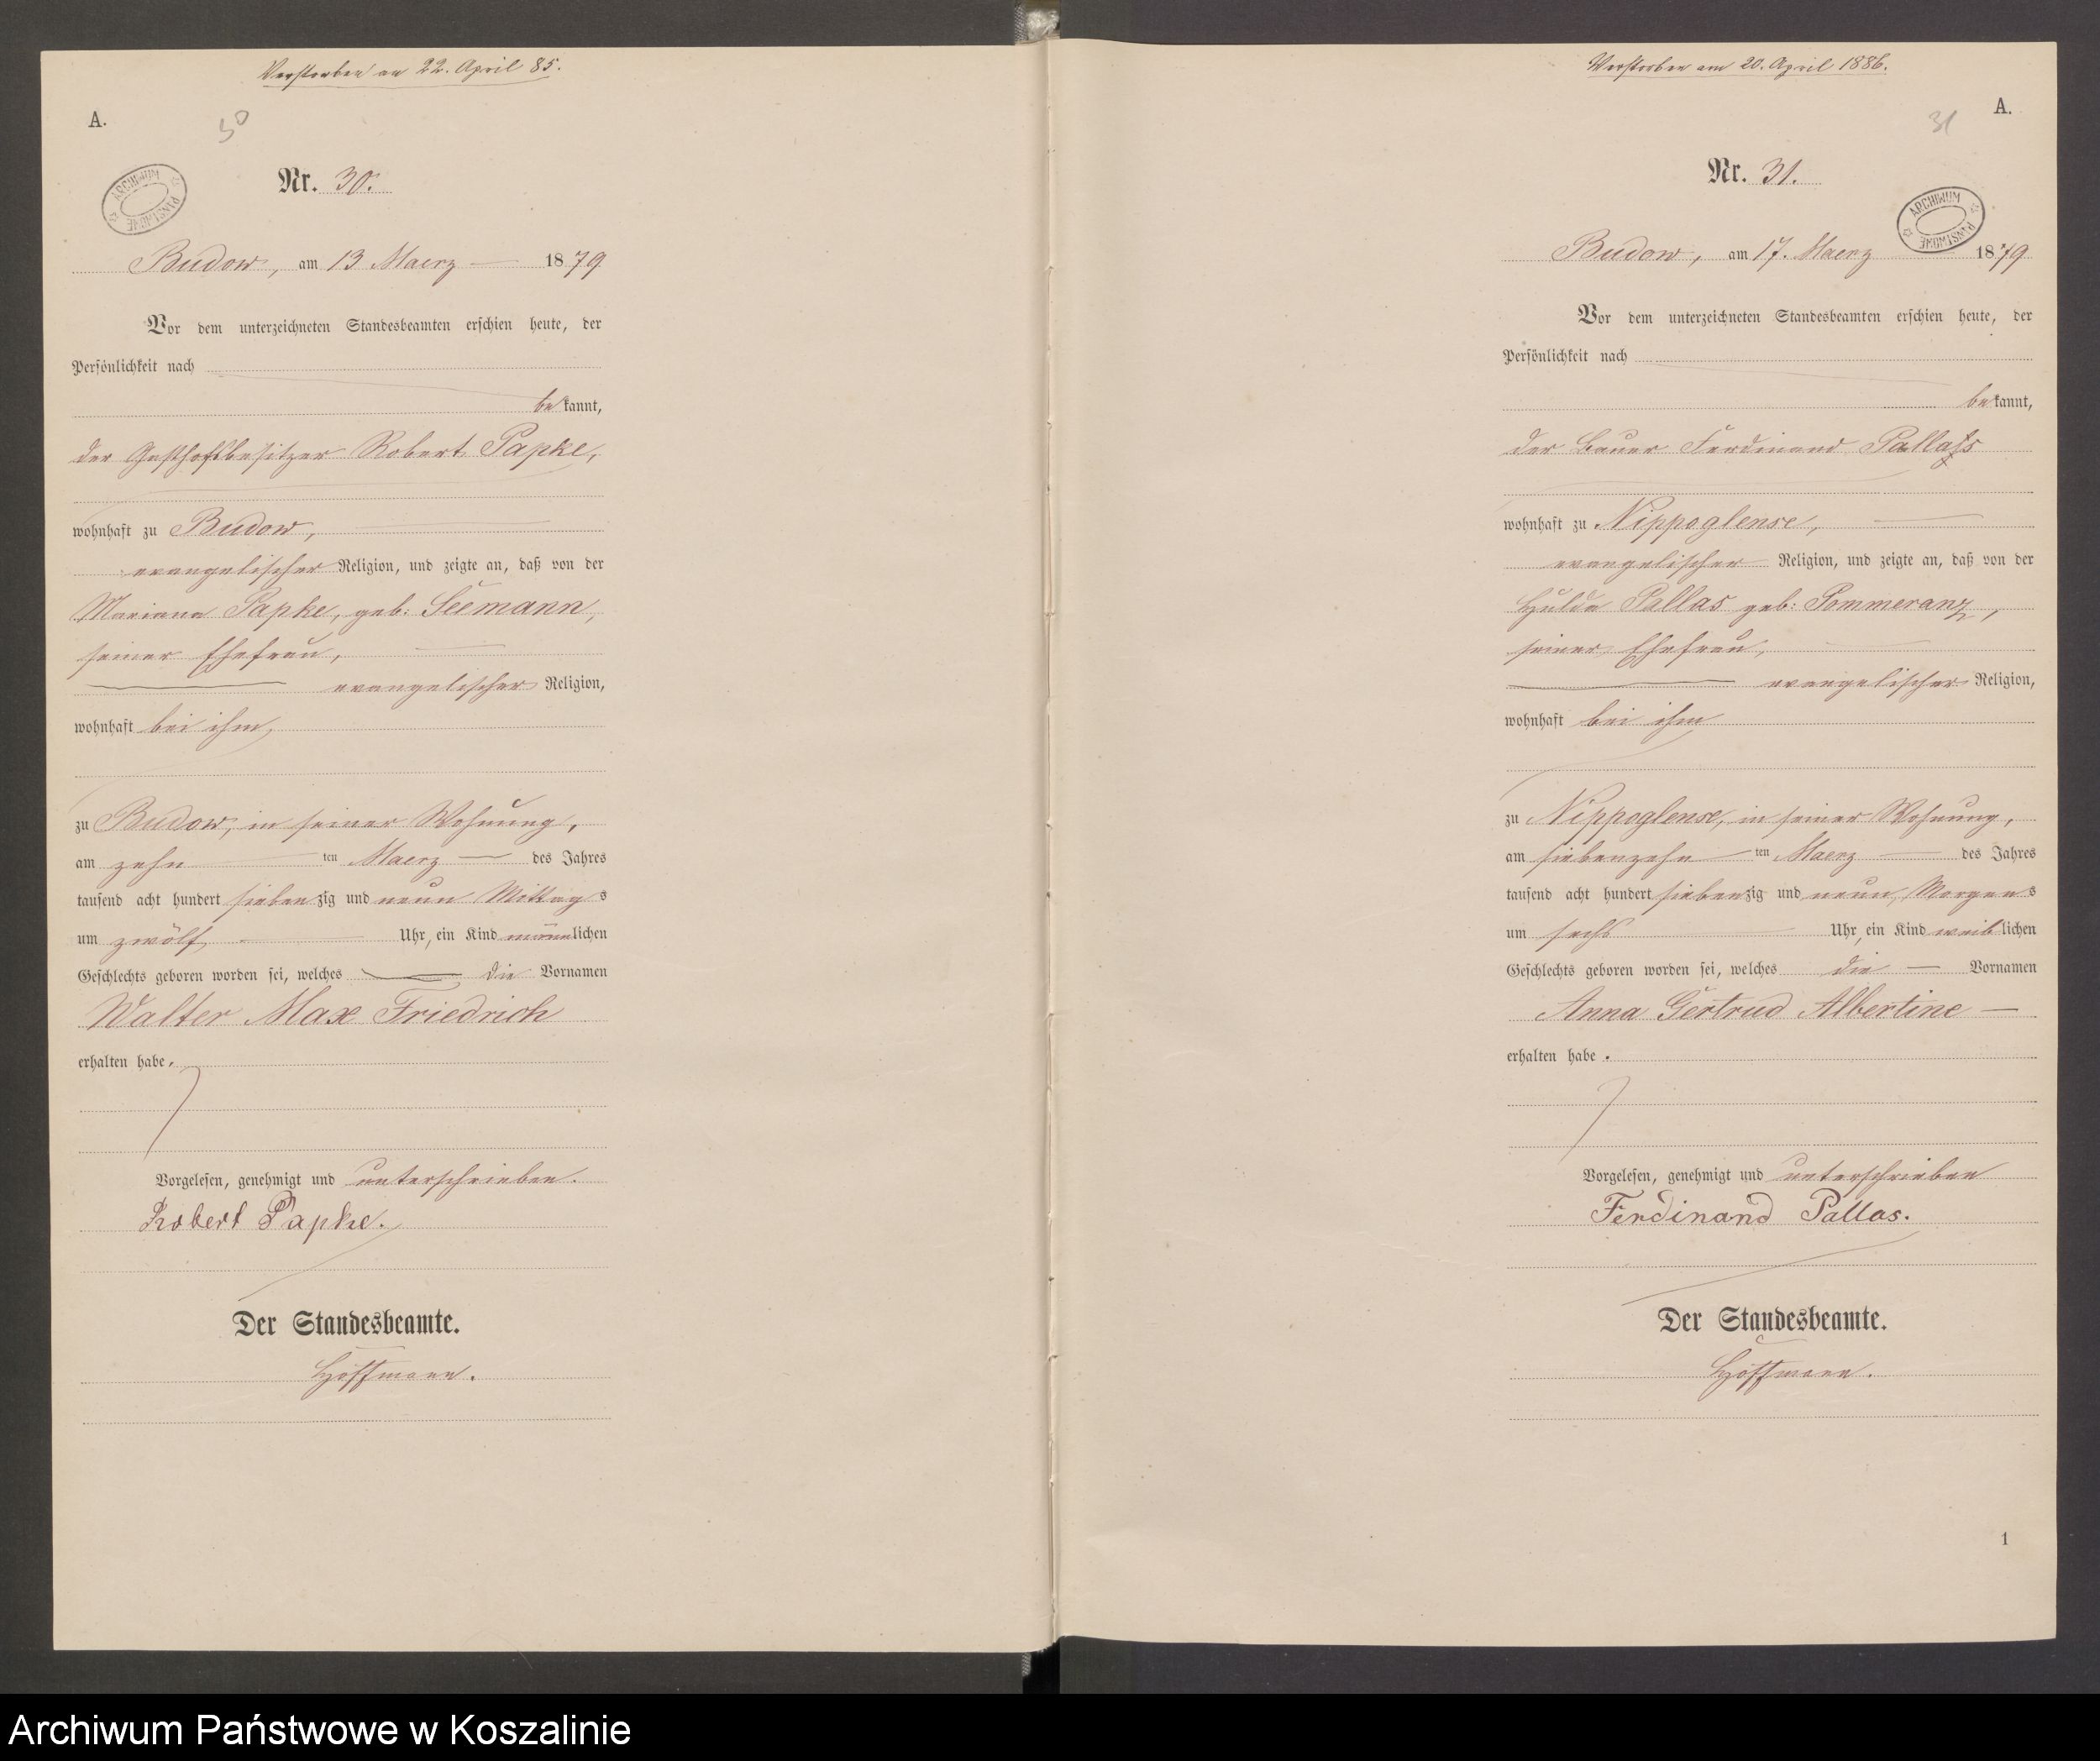 Verstorben am 22. April 85.
A.
30
Nr. 30.
ARCHIWUM PAŃSTWOWE
Budow, am 13 Maerz 1879
Vor dem unterzeichneten Standesbeamten erschien heute, der
Persönlichkeit nach
bekannt,
der Gasthofsbesitzer Robert Papke,
wohnhaft zu Budow,
evangelischer Religion, und zeigte an, daß von der
Mariana Papke, geb: Seemann,
seiner Ehefrau,
evangelischer Religion,
wohnhaft bei ihm,
zu Budow, in seiner Wohnung,
am zehn ten Maerz des Jahres
tausend acht hundert siebenzig und neun Mittags
um zwölf Uhr, ein Kind männlichen
Geschlechts geboren worden sei, welches die Vornamen
Walter Max Friedrich
erhalten habe.
Vorgelesen, genehmigt und unterschrieben.
Robert Papke.
Der Standesbeamte.
Hoffmann.
Verstorben am 20. April 1886.
A.
31
Nr. 31.
ARCHIWUM PAŃSTWOWE
Budow, am 17. Maerz 1879
Vor dem unterzeichneten Standesbeamten erschien heute, der
Persönlichkeit nach
bekannt,
der Bauer Ferdinand Pallas
wohnhaft zu Nippoglense,
evangelischer Religion, und zeigte an, daß von der
Hulda Pallas geb: Pommeranz,
seiner Ehefrau,
evangelischer Religion,
wohnhaft bei ihm
zu Nippoglense, in seiner Wohnung,
am siebenzehn ten Maerz des Jahres
tausend acht hundert siebenzig und neun, Morgens
um sechs Uhr, ein Kind weiblichen
Geschlechts geboren worden sei, welches die Vornamen
Anna Gertrud Albertine
erhalten habe.
Vorgelesen, genehmigt und unterschrieben
Ferdinand Pallas.
Der Standesbeamte.
Hoffmann.
1
Archiwum Państwowe w Koszalinie